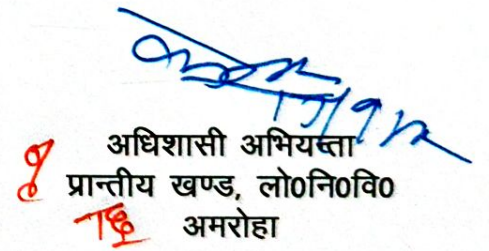 अधिशासी अभियन्ता
प्रान्तीय खण्ड, लो0नि0वि0
अमरोहा